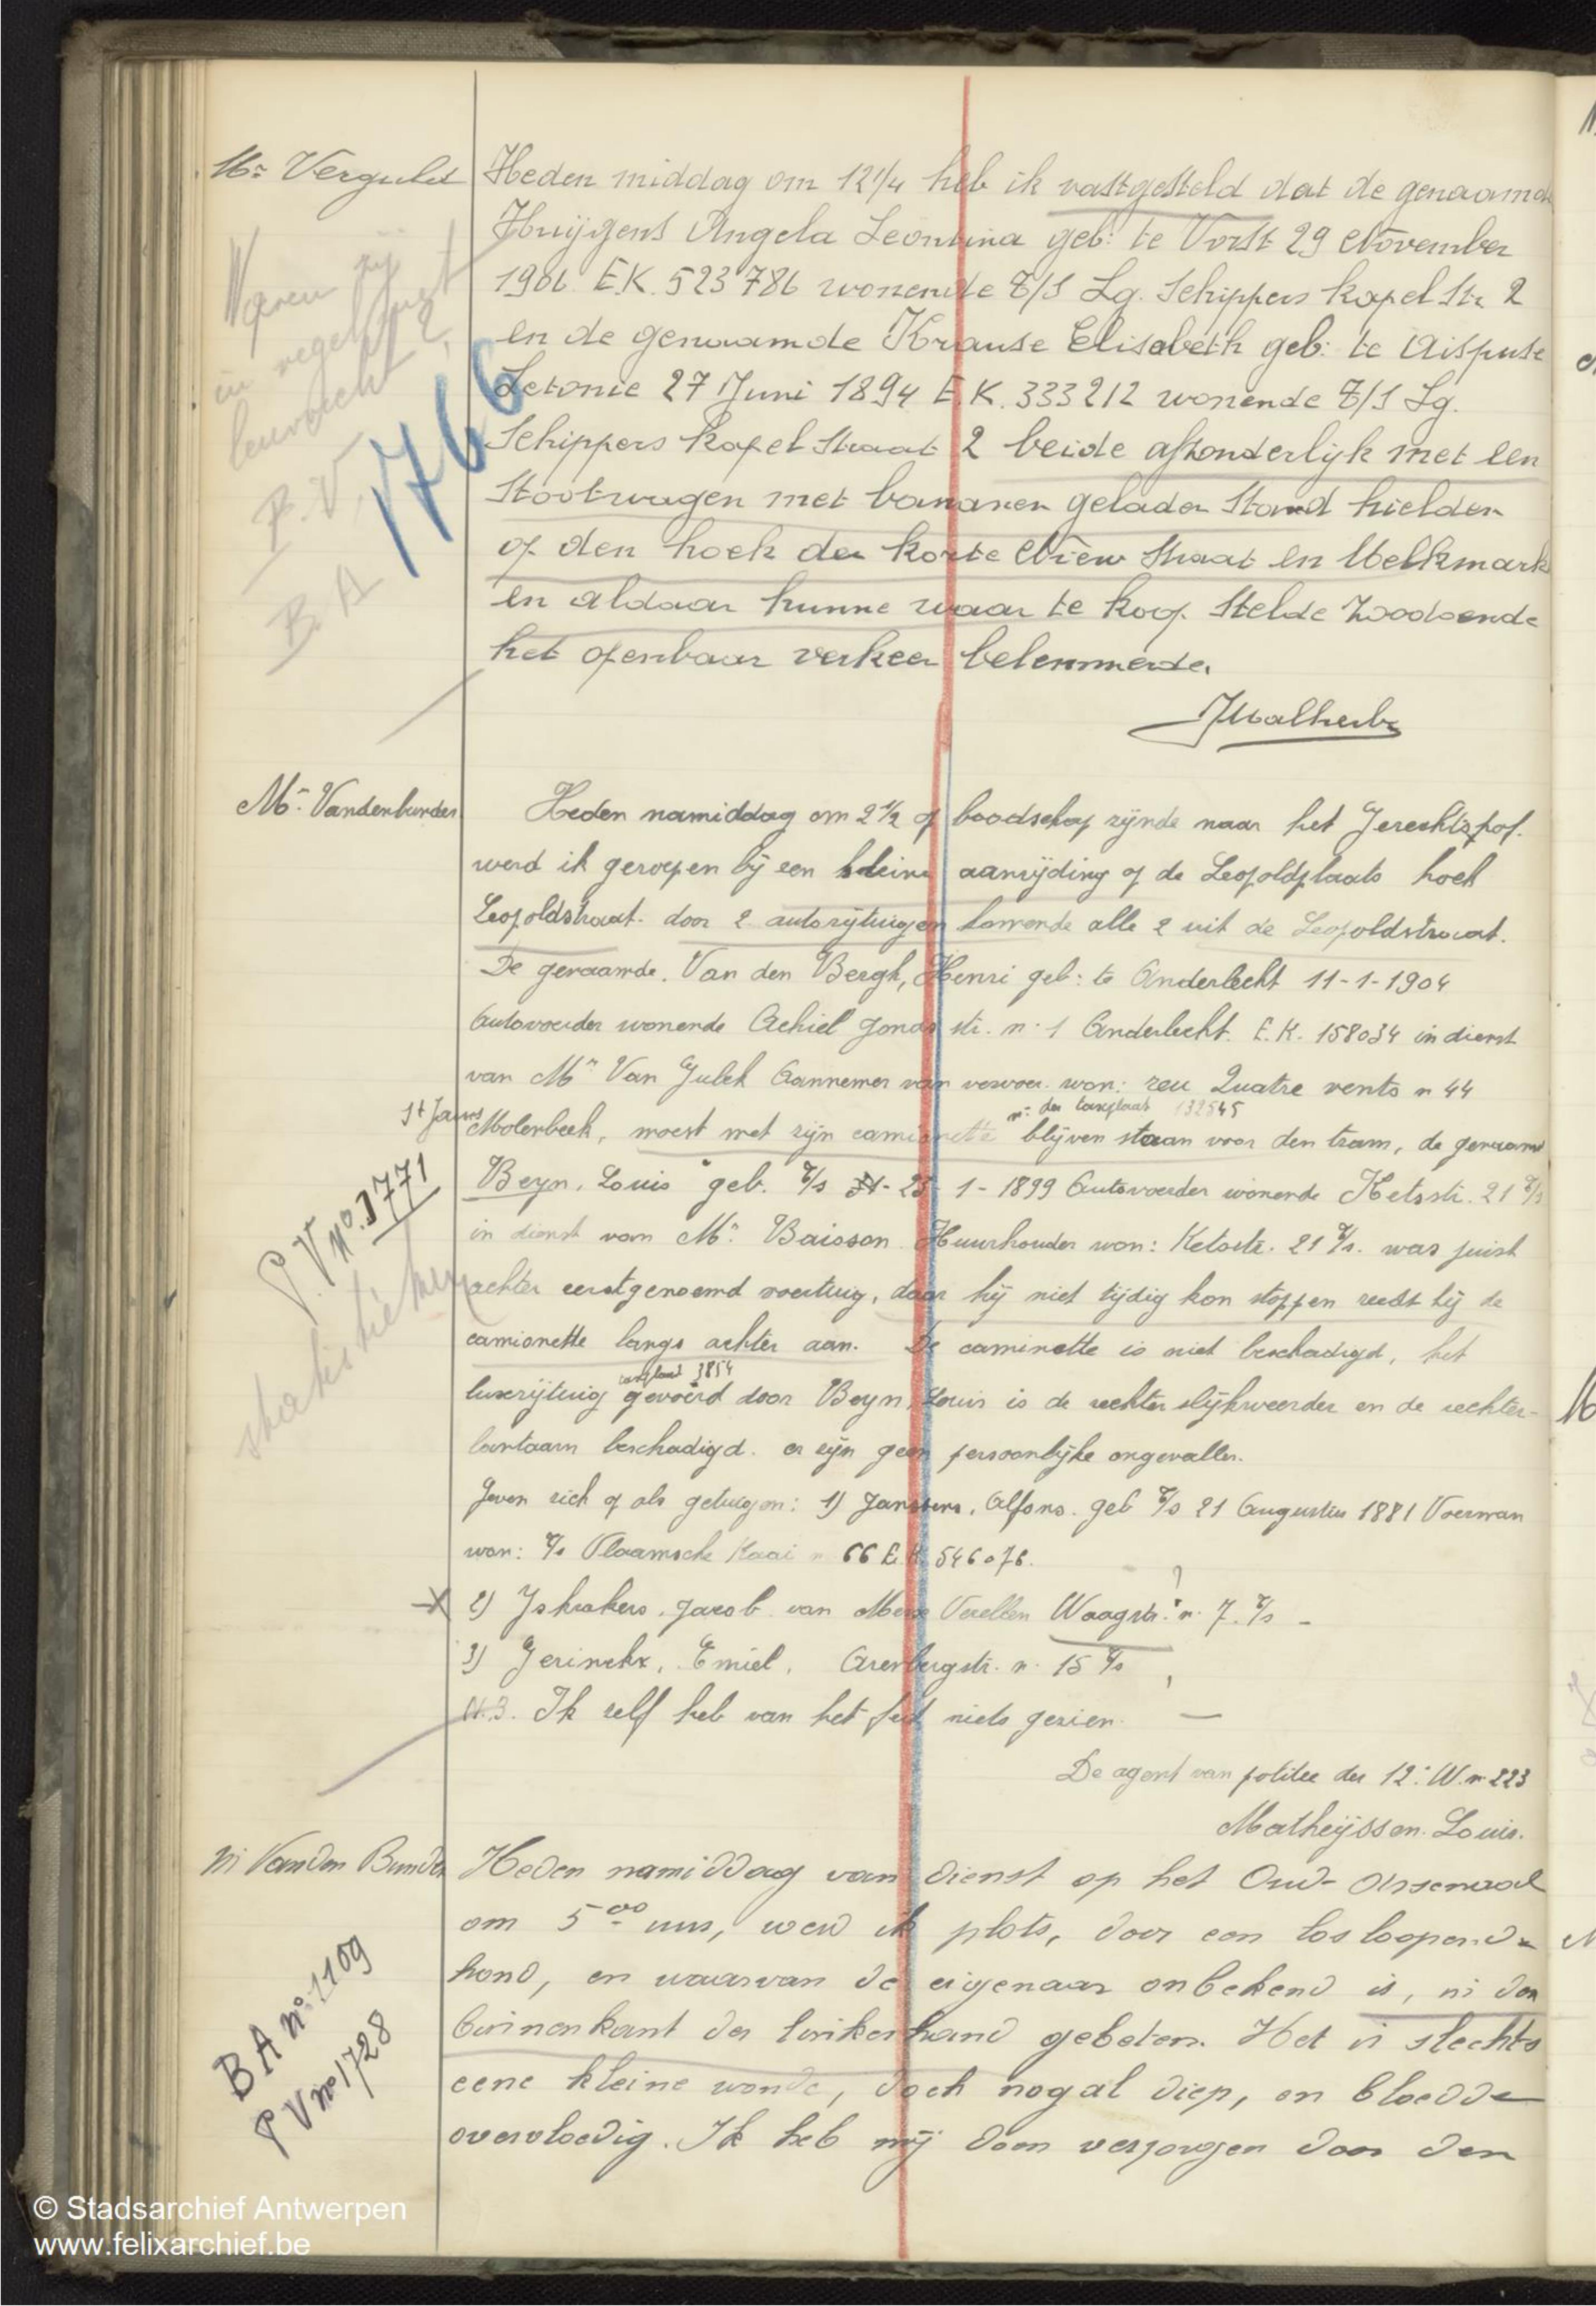 Mr Verguld
Heden middag om 12 1/4 heb ik vastgesteld dat de genaamde
Huijgens Angela Leontina geb: te Vorst 29 November
1906 E.K. 523786 wonende T/S Lg. Schippers kapel Str 2
en de genaamde Krause Elisabeth geb: te Aispute
Letonie 27 Juni 1894 E.K. 333212 wonende T/S Lg.
Schippers kapel Straat 2 beide afzonderlijk met een
Stootwagen met bananen geladen Stand hielden
op den hoek der korte Niew Straat en Melkmark
en aldaar hunne waar te koop Stelde Zoodoende
het openbaar verkeer belemmerde.
JMalherbe
Waren zij
in regel met
leurrecht ?
P.V. 1766
B.A
Mr Vandenbunder
Heden namiddag om 2 1/2 op boodschap zijnde naar het Gerechtshof.
werd ik geroepen bij een kleine aanrijding op de Leopoldplaats hoek
Leopoldstraat. door 2 autorijtuigen komende alle 2 uit de Leopoldstraat.
De genaamde. Van den Bergh, Henri geb: te Anderlecht 11-1-1904
Autovoerder wonende Achiel Jonas str. n: 1 Anderlecht. E.K. 158034 in dienst
van Mr Van Gulck Aannemer van vervoer. won: reu Quatre vents n 44
nr der taxplaat 132545
St Jans Molenbeek, moest met zijn camionette blijven staan voor den tram, de genaamd
Beyn, Louis geb. T/S 23-1-1899 Autovoerder wonende Ketsstr. 21 T/S
in dienst van Mr Baisson Huurhouder won: Ketsstr. 21 T/S. was juist
achter eerstgenoemd voertuig, daar hij niet tijdig kon stoppen reedt hij de
camionette langs achter aan. De caminette is niet beschadigd, het
taxplaat 3854
luxerijtuig gevoerd door Beyn, Louis is de rechter slijkweerder en de rechter-
lantaarn beschadigd. er zijn geen persoonlijke ongevallen.
Geven zich op als getuigen: 1) Janssens, Alfons. geb T/S 21 Augustus 1881 Voerman
won: T/S Vlaamsche Kaai n 66 E.K. 546076.
2) Yskrakers, Jacob van Verellen Waagstr. n. 7. T/S -
3) Gerinckx, Emiel, Arenbergstr. n. 15 T/S
N.B. Ik zelf heb van het feit niets gezien.
De agent van politie der 12e W. n 223
Matheijssen. Louis.
P.V. No. 3771
statistieken
Mr Van den Bunder
Heden namiddag van dienst op het Oud-Arsenaal
om 5 00 uur, werd ik plots, door een losloopende
hond, en waarvan de eigenaar onbekend is, in den
binnenkant der linkerhand gebeten. Het is slechts
eene kleine wonde, doch nogal diep, en bloedde
overvloedig. Ik heb mij doen verzorgen door den
BA No: 1109
PV No 1728
© Stadsarchief Antwerpen
www.felixarchief.be